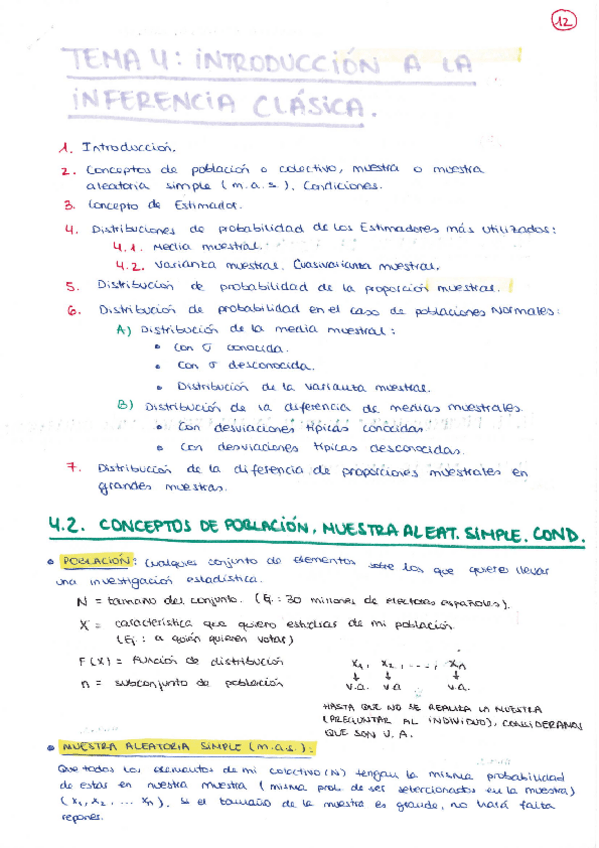 12
TEMA 4: INTRODUCCIÓN A LA
INFERENCIA CLÁSICA.
1. Introducción.
2. Conceptos de población o colectivo, muestra o muestra
aleatoria simple (m.a.s.). Condiciones.
3. Concepto de Estimador.
4. Distribuciones de probabilidad de los Estimadores más utilizados:
4.1. Media muestral.
4.2. Varianza muestral. Cuasivarianza muestral.
5. Distribución de probabilidad de la proporción muestral.
6. Distribución de probabilidad en el caso de poblaciones Normales:
A) Distribución de la media muestral:
• Con σ conocida.
• Con σ desconocida.
• Distribución de la varianza muestral.
B) Distribución de la diferencia de medias muestrales.
• Con desviaciones típicas conocidas
• Con desviaciones típicas desconocidas.
7. Distribución de la diferencia de proporciones muestrales en
grandes muestras.
4.2. CONCEPTOS DE POBLACIÓN, MUESTRA ALEAT. SIMPLE. COND.
• POBLACIÓN: Cualquier conjunto de elementos sobre los que quieres llevar
una investigación estadística.
N = tamaño del conjunto. (Ej.: 30 millones de electores españoles).
X = característica que quiero estudiar de mi población.
(Ej.: a quién quieren votar)
F(X) = función de distribución
n = subconjunto de población
x₁, x₂, ...., xₙ
↓ ↓ ↓
v.a. v.a v.a.
HASTA QUE NO SE REALIZA LA MUESTRA
(PREGUNTAR AL INDIVIDUO), CONSIDERAMOS
QUE SON V.A.
• MUESTRA ALEATORIA SIMPLE (m.a.s.):
Que todos los elementos de mi colectivo (N) tengan la misma probabilidad
de estar en nuestra muestra (misma prob. de ser seleccionados en la muestra)
(x₁, x₂, ... xₙ). Si el tamaño de la muestra es grande, no hará falta
reponer.